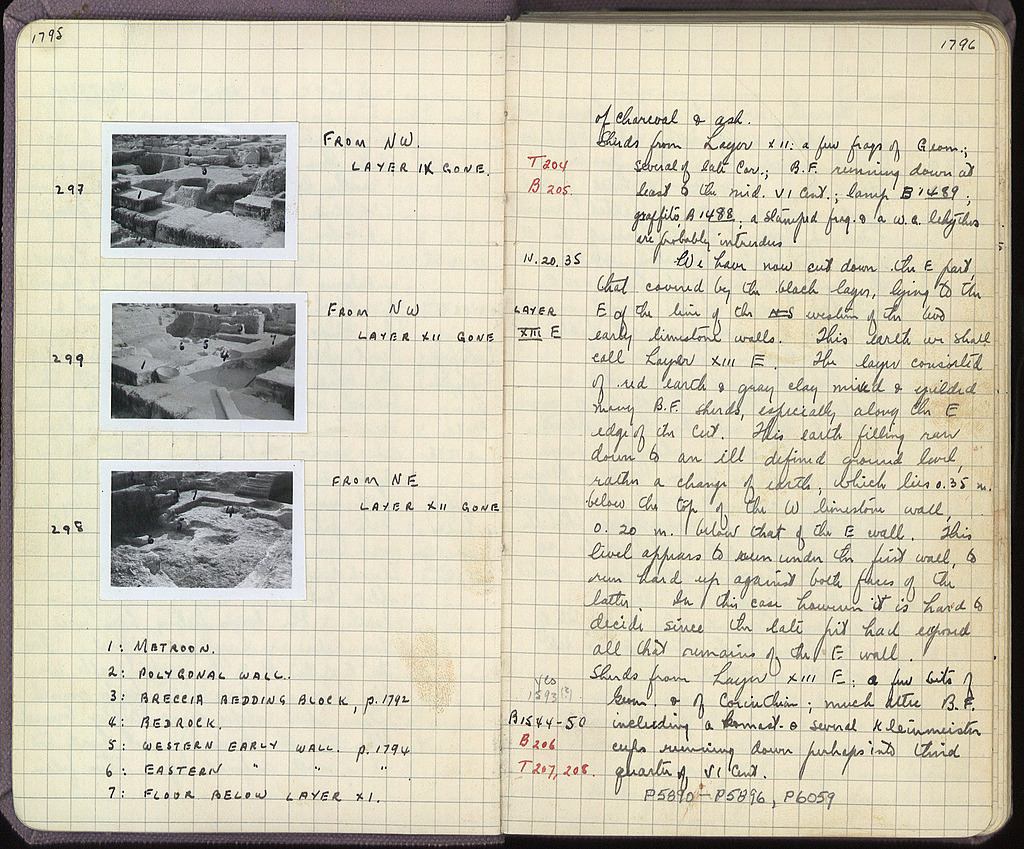 1795
297
FROM NW.
LAYER IX GONE.
299
FROM NW
LAYER XII GONE
298
FROM NE
LAYER XII GONE
1: METROON.
2: POLYGONAL WALL.
3: BRECCIA BEDDING BLOCK, p. 1792
4: BEDROCK.
5: WESTERN EARLY WALL. p. 1794
6: EASTERN " " "
7: FLOOR BELOW LAYER XI.
1796
of charcoal & ash.
Sherds from Layer XII: a few frags of Geom.;
T 204
several of late Cor.; B.F. running down at
B 205.
least to the mid. VI Cent.; lamp B 1489;
graffito A 1488; a stamped frag. & a w.g. lekythos
are probably intruders
IV. 20. 35
We have now cut down the E part,
that covered by the black layer, lying to the
LAYER XIII E
E of the line of the western of the two
early limestone walls. This earth we shall
call Layer XIII E. The layer consisted
of red earth & gray clay mixed & yielded
many B.F. sherds, especially along the E
edge of the cut. This earth filling ran
down to an ill defined ground level,
rather a change of earth, which lies 0.35 m.
below the top of the W limestone wall,
0.20 m. below that of the E wall. This
level appears to run under the first wall, to
run hard up against both faces of the
latter. In this case however it is hard to
decide since the late pit had exposed
all that remains of the E wall.
Sherds from Layer XIII E: a few bits of
yes
1593 (?)
Geom. & of Corinthian; much Attic B.F.
B1544-50
including a komast & several Kleinmeister
B 206
cups running down perhaps into third
T 207, 208.
quarter of VI Cent.
P5890 - P5896, P6059